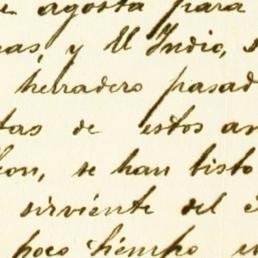 agosta para
y El Indio,
herradero pasad
tas de estos an
on, se han listo
sirviente del e
poco tiempo u